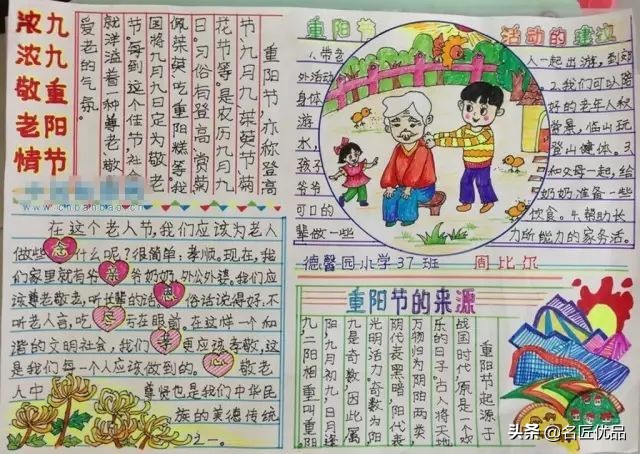 九九重阳节
浓浓敬老情
重阳节,亦称登高
节、九月九、茱萸节、菊
花节等。是农历九月九
日。习俗有登高、赏菊
佩茱萸、吃重阳糕等我
国将九月九日定为敬老
节。每到这个佳节社会
就洋溢着一种尊老、敬老
爱老的气氛。
www.chbanbao.cn
在这个老人节,我们应该为老人
做些念什么呢?很简单:孝顺。现在,我
们家里就有爷亲爷奶奶、外公外婆。我们应
该尊老敬老,听长辈的话恩俗话说得好,不
听老人言,吃亏在眼前。在这样一个和
谐的文明社会,我们孝更应该孝敬,这
是我们每一个人应该做到的。心敬老
人中尊贤也是我们中华民
族的美德传统
之一。
重阳节 活动的建议
1.带老人一起出游,到郊
外活动 2.我们可以陪
身体好的老年人秋
游赏景,临山玩
水,登山健体。3.
孩子和父母一起,给
爷爷奶奶准备一些
可口的饮食。4.帮助长
辈做一些力所能力的家务活。
德馨园小学37班 周比尔
重阳节的来源
重阳节起源于
战国时代,原是一个欢
乐的日子。古人将天地
万物归为阴阳两类,
阴代表黑暗,阳代表
光明活力。奇数为阳
九是奇数,因此属
阳九月初九日月逢
九二阳相重叫重阳
头条 @名匠优品